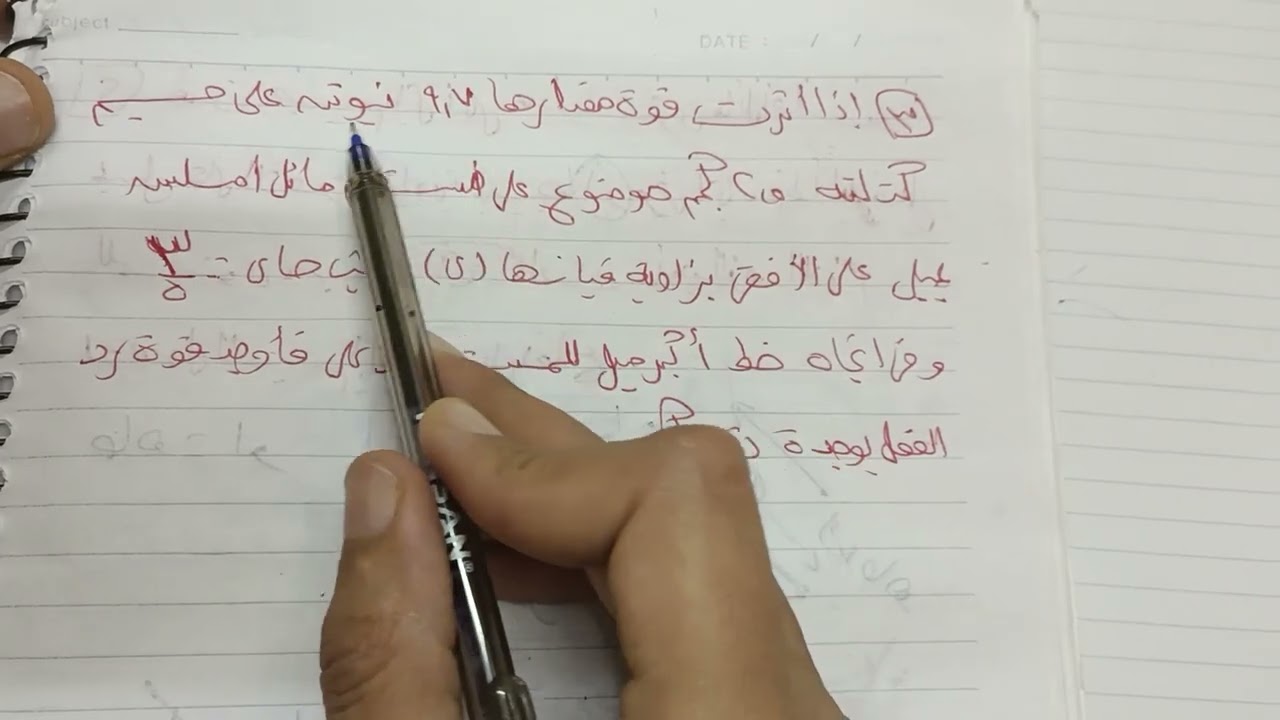 Subject
DATE : / /
٣ إذا أثرت قوة مقدارها ٩,٧ نيوتن على جسم
كتلته ٢ كجم موضوع على مستـ مائل أملس
يميل على الأفقى بزاوية قياسها (ى) جاى = ٣/٥
وفى اتجاه خط أكبر ميل للمستـ على فأوجد قوة رد
الفعل بوحدة ث كجم
PAN®